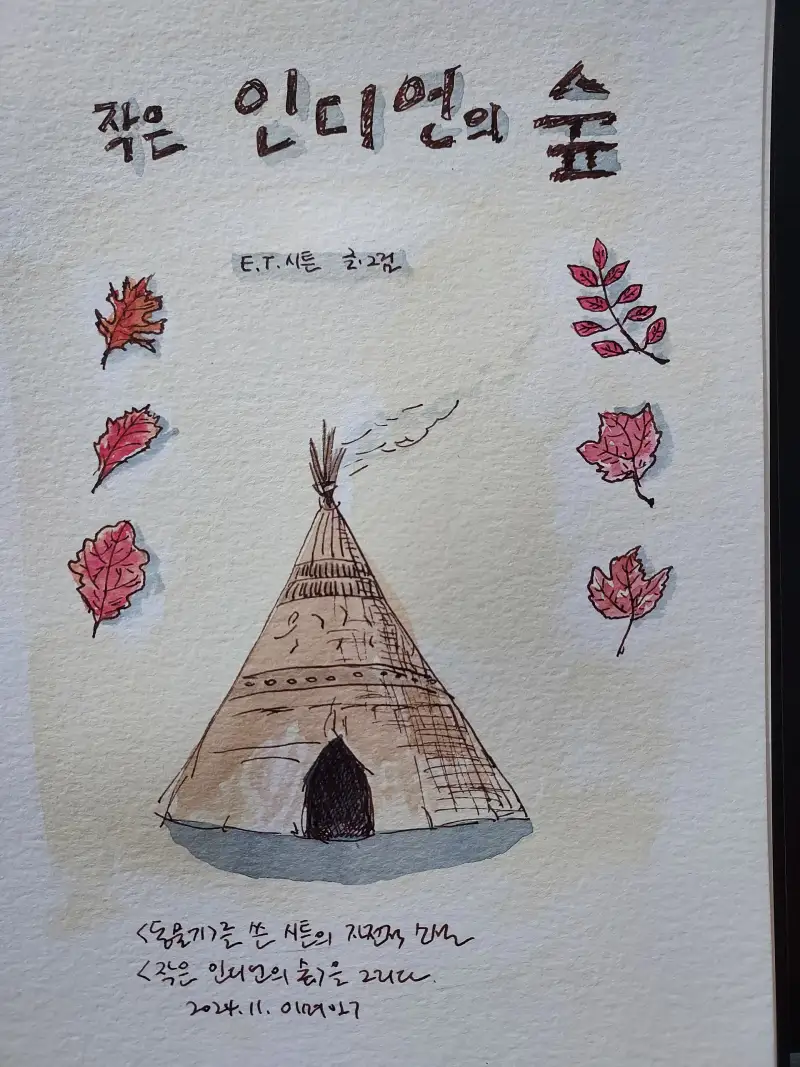 작은 인디언의 숲
E.T. 시튼 글·그림
<동물기>를 쓴 시튼의 자전적 소설
<작은 인디언의 숲>을 그리다.
2024.11.